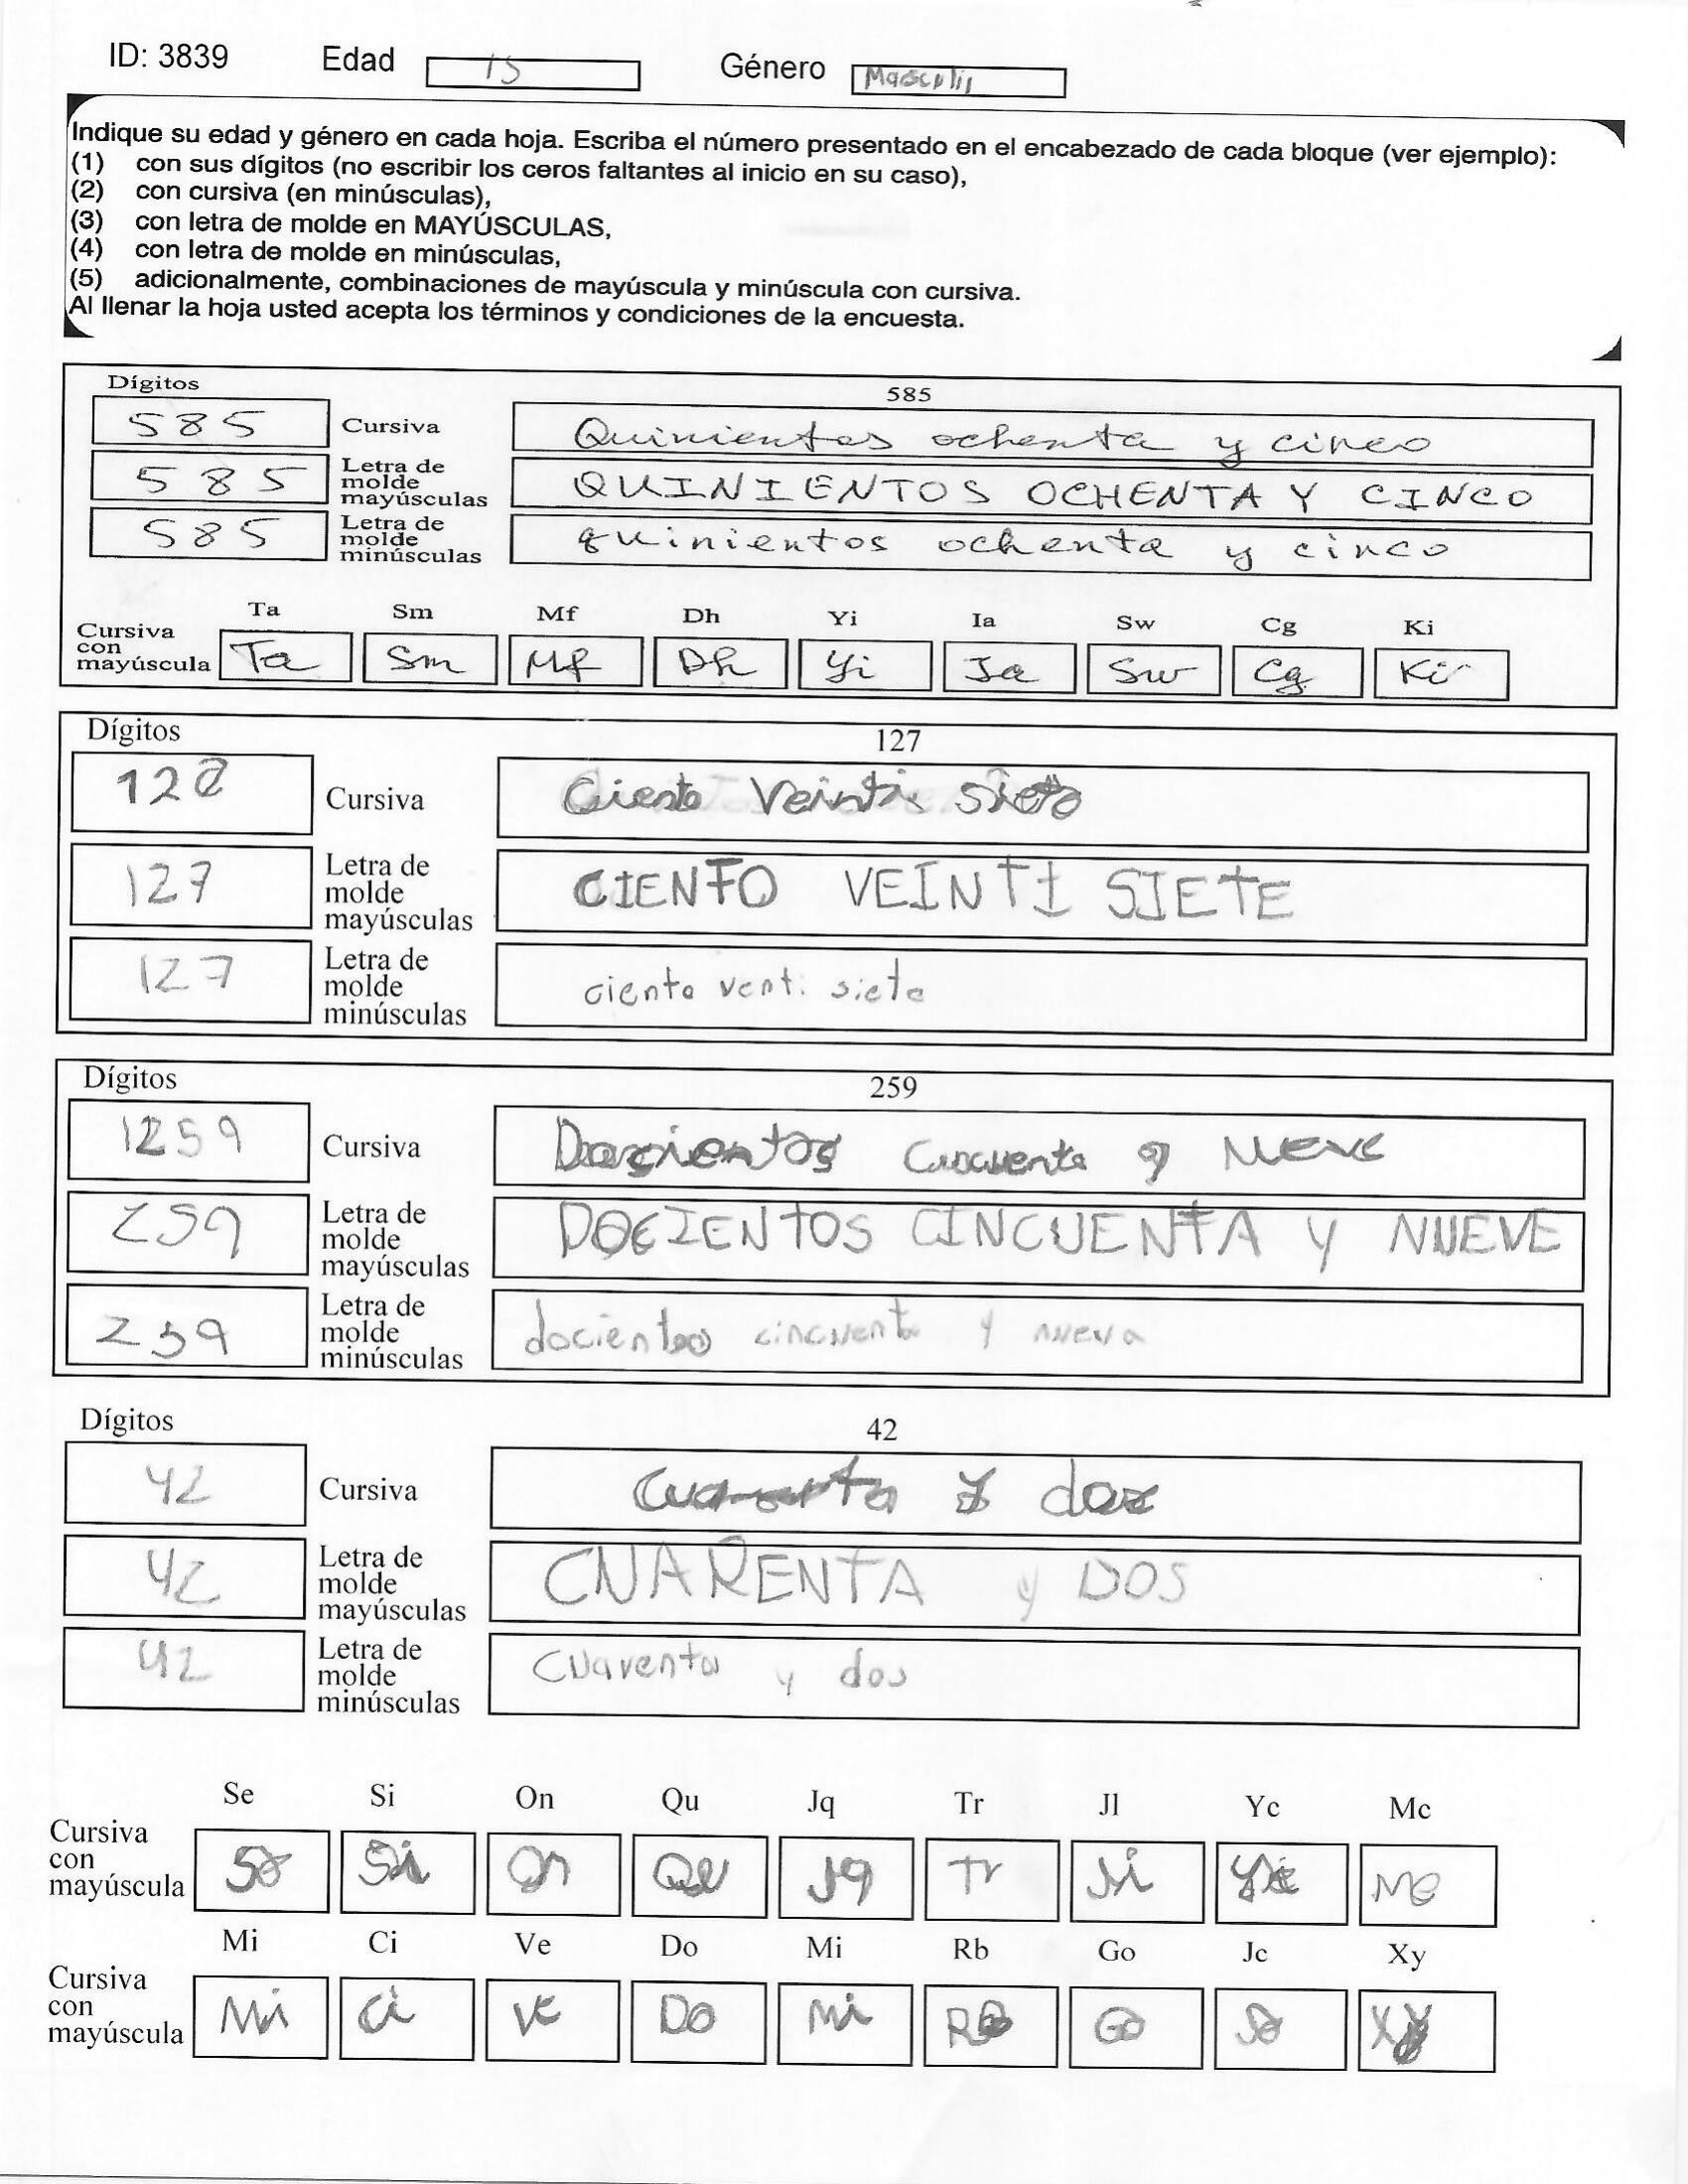 ID: 3839 Edad 15 Género Masculin
Indique su edad y género en cada hoja. Escriba el número presentado en el encabezado de cada bloque (ver ejemplo):
(1) con sus dígitos (no escribir los ceros faltantes al inicio en su caso),
(2) con cursiva (en minúsculas),
(3) con letra de molde en MAYÚSCULAS,
(4) con letra de molde en minúsculas,
(5) adicionalmente, combinaciones de mayúscula y minúscula con cursiva.
Al llenar la hoja usted acepta los términos y condiciones de la encuesta.
Dígitos 585
585 Cursiva Quinientos ochenta y cinco
585 Letra de molde mayúsculas QUINIENTOS OCHENTA Y CINCO
585 Letra de molde minúsculas quinientos ochenta y cinco
Ta Sm Mf Dh Yi Ia Sw Cg Ki
Cursiva con mayúscula Ta Sm Mf Dh Yi Ia Sw Cg Ki
Dígitos 127
127 Cursiva Ciento Veinti siete
127 Letra de molde mayúsculas CIENTO VEINTI SIETE
127 Letra de molde minúsculas ciento venti siete
Dígitos 259
1259 Cursiva Docientos Cincuenta y Nueve
259 Letra de molde mayúsculas DOCIENTOS CINCUENTA Y NUEVE
259 Letra de molde minúsculas docientos cincuenta y nueve
Dígitos 42
42 Cursiva y dos
42 Letra de molde mayúsculas CUARENTA y DOS
42 Letra de molde minúsculas Cuarenta y dos
Se Si On Qu Jq Tr Jl Yc Mc
Cursiva con mayúscula Se Si On Qu Jq Tr Yc Mc
Mi Ci Ve Do Mi Rb Go Jc Xy
Cursiva con mayúscula Mi Ci Ve Do Mi Rb Go Xy